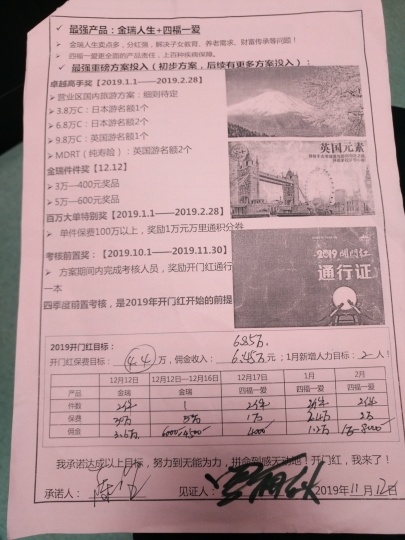 最强产品：金瑞人生+四福一爱
金瑞人生卖点多，分红强，解决子女教育、养老需求、财富传承等问题！
四福一爱更全面的产品责任，上百种疾病保障。
最强重磅方案投入（初步方案，后续有更多方案投入）：
卓越高手奖【2019.1.1——2019.2.28】
营业区国内旅游方案：细则待定
3.8万C：日本游名额1个
6.8万C：日本游名额2个
9.8万C：英国游名额1个
MDRT（纯寿险）：英国游名额2个
金瑞件件奖【12.12】
3万—400元奖品
5万—600元奖品
英国元素
百万大单特别奖【2019.1.1——2019.2.28】
单件保费100万以上，奖励1万元万里通积分券
考核前置奖：【2019.10.1——2019.11.30】
方案期间内完成考核人员，奖励开门红通行
一本
2019开门红
通行证
四季度前置考核，是2019年开门红开始的前提
2019开门红目标：
开门红保费目标： 万，佣金收入： 元；1月新增人力目标：2人！
12月12日 12月12日—12月16日 12月17日 1月 2月
产品 金瑞 金瑞 四福一爱 四福一爱 四福一爱
件数 2件 1 2件 2件
保费 5万 1万 2万
佣金 3.6万 6000-4500 4000 1.2万
我承诺达成以上目标，努力到无能为力，拼命到感天动地！开门红，我来了！
承诺人： 见证人： 2019年11月12日